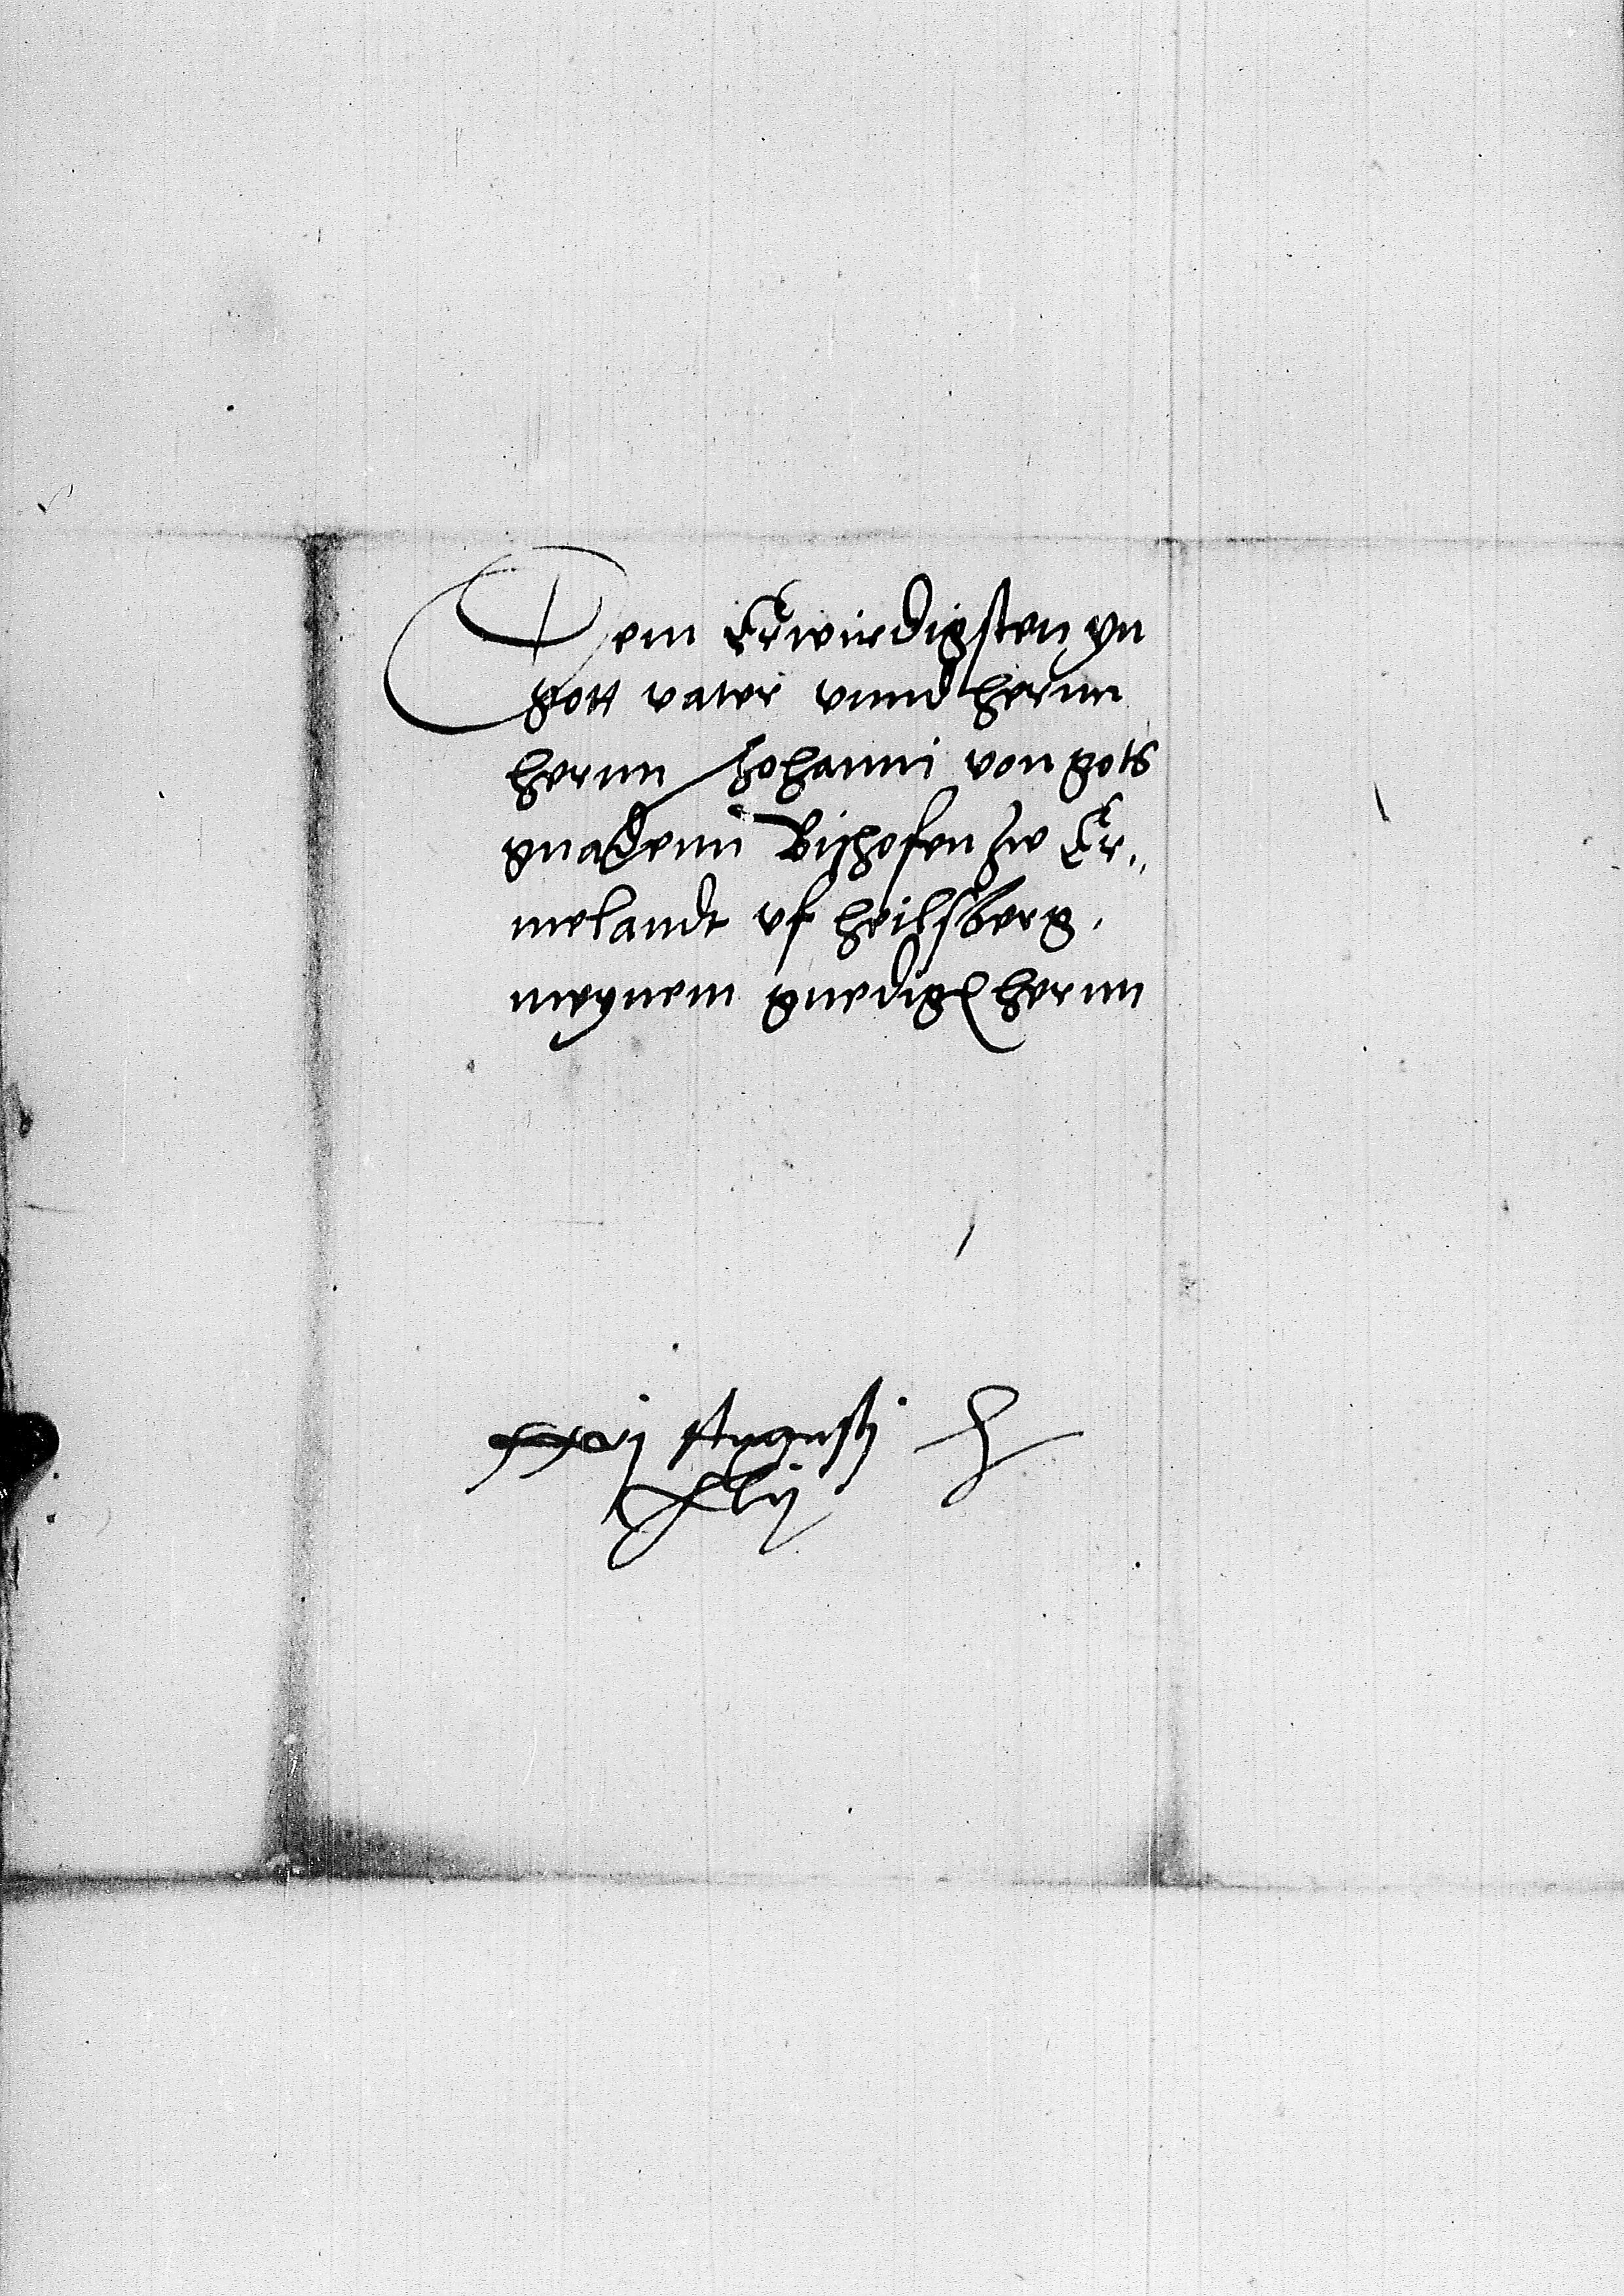 Dem Erwirdigsten yn
gott vater vnnd hernn
hernn Johanni von gots
gnadenn Bischofen zw Er„
melandt vf heilsberg.
meynem gnedig(e)n hernn
xxvj Augusti
xlij